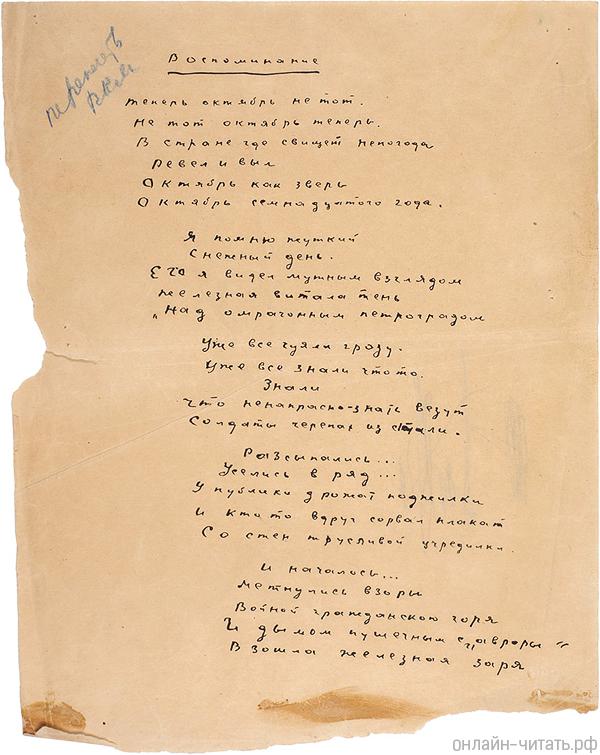 Воспоминание
теперь октябрь не тот.
Не тот октябрь теперь.
В стране где свищет непогода
Ревел и выл
Октябрь как зверь
Октябрь семнадцатого года.
Я помню жуткий
Снежный день.
Его я видел мутным взглядом
железная витала тень
„Над омраченным петроградом
Уже все чуяли грозу.
Уже все знали что то.
Знали
что ненапрасно-знать везут
Солдаты черепах из стали.
Рассыпались...
Уселись в ряд...
У публики дрожат поджилки
И кто то вдруг сорвал плакат
Со стен трусливой учредилки.
И началось...
Метнулись взоры
Войной гражданскою горя
И дымом пушечным с „авроры"
Взошла железная заря
онлайн-читать.рф